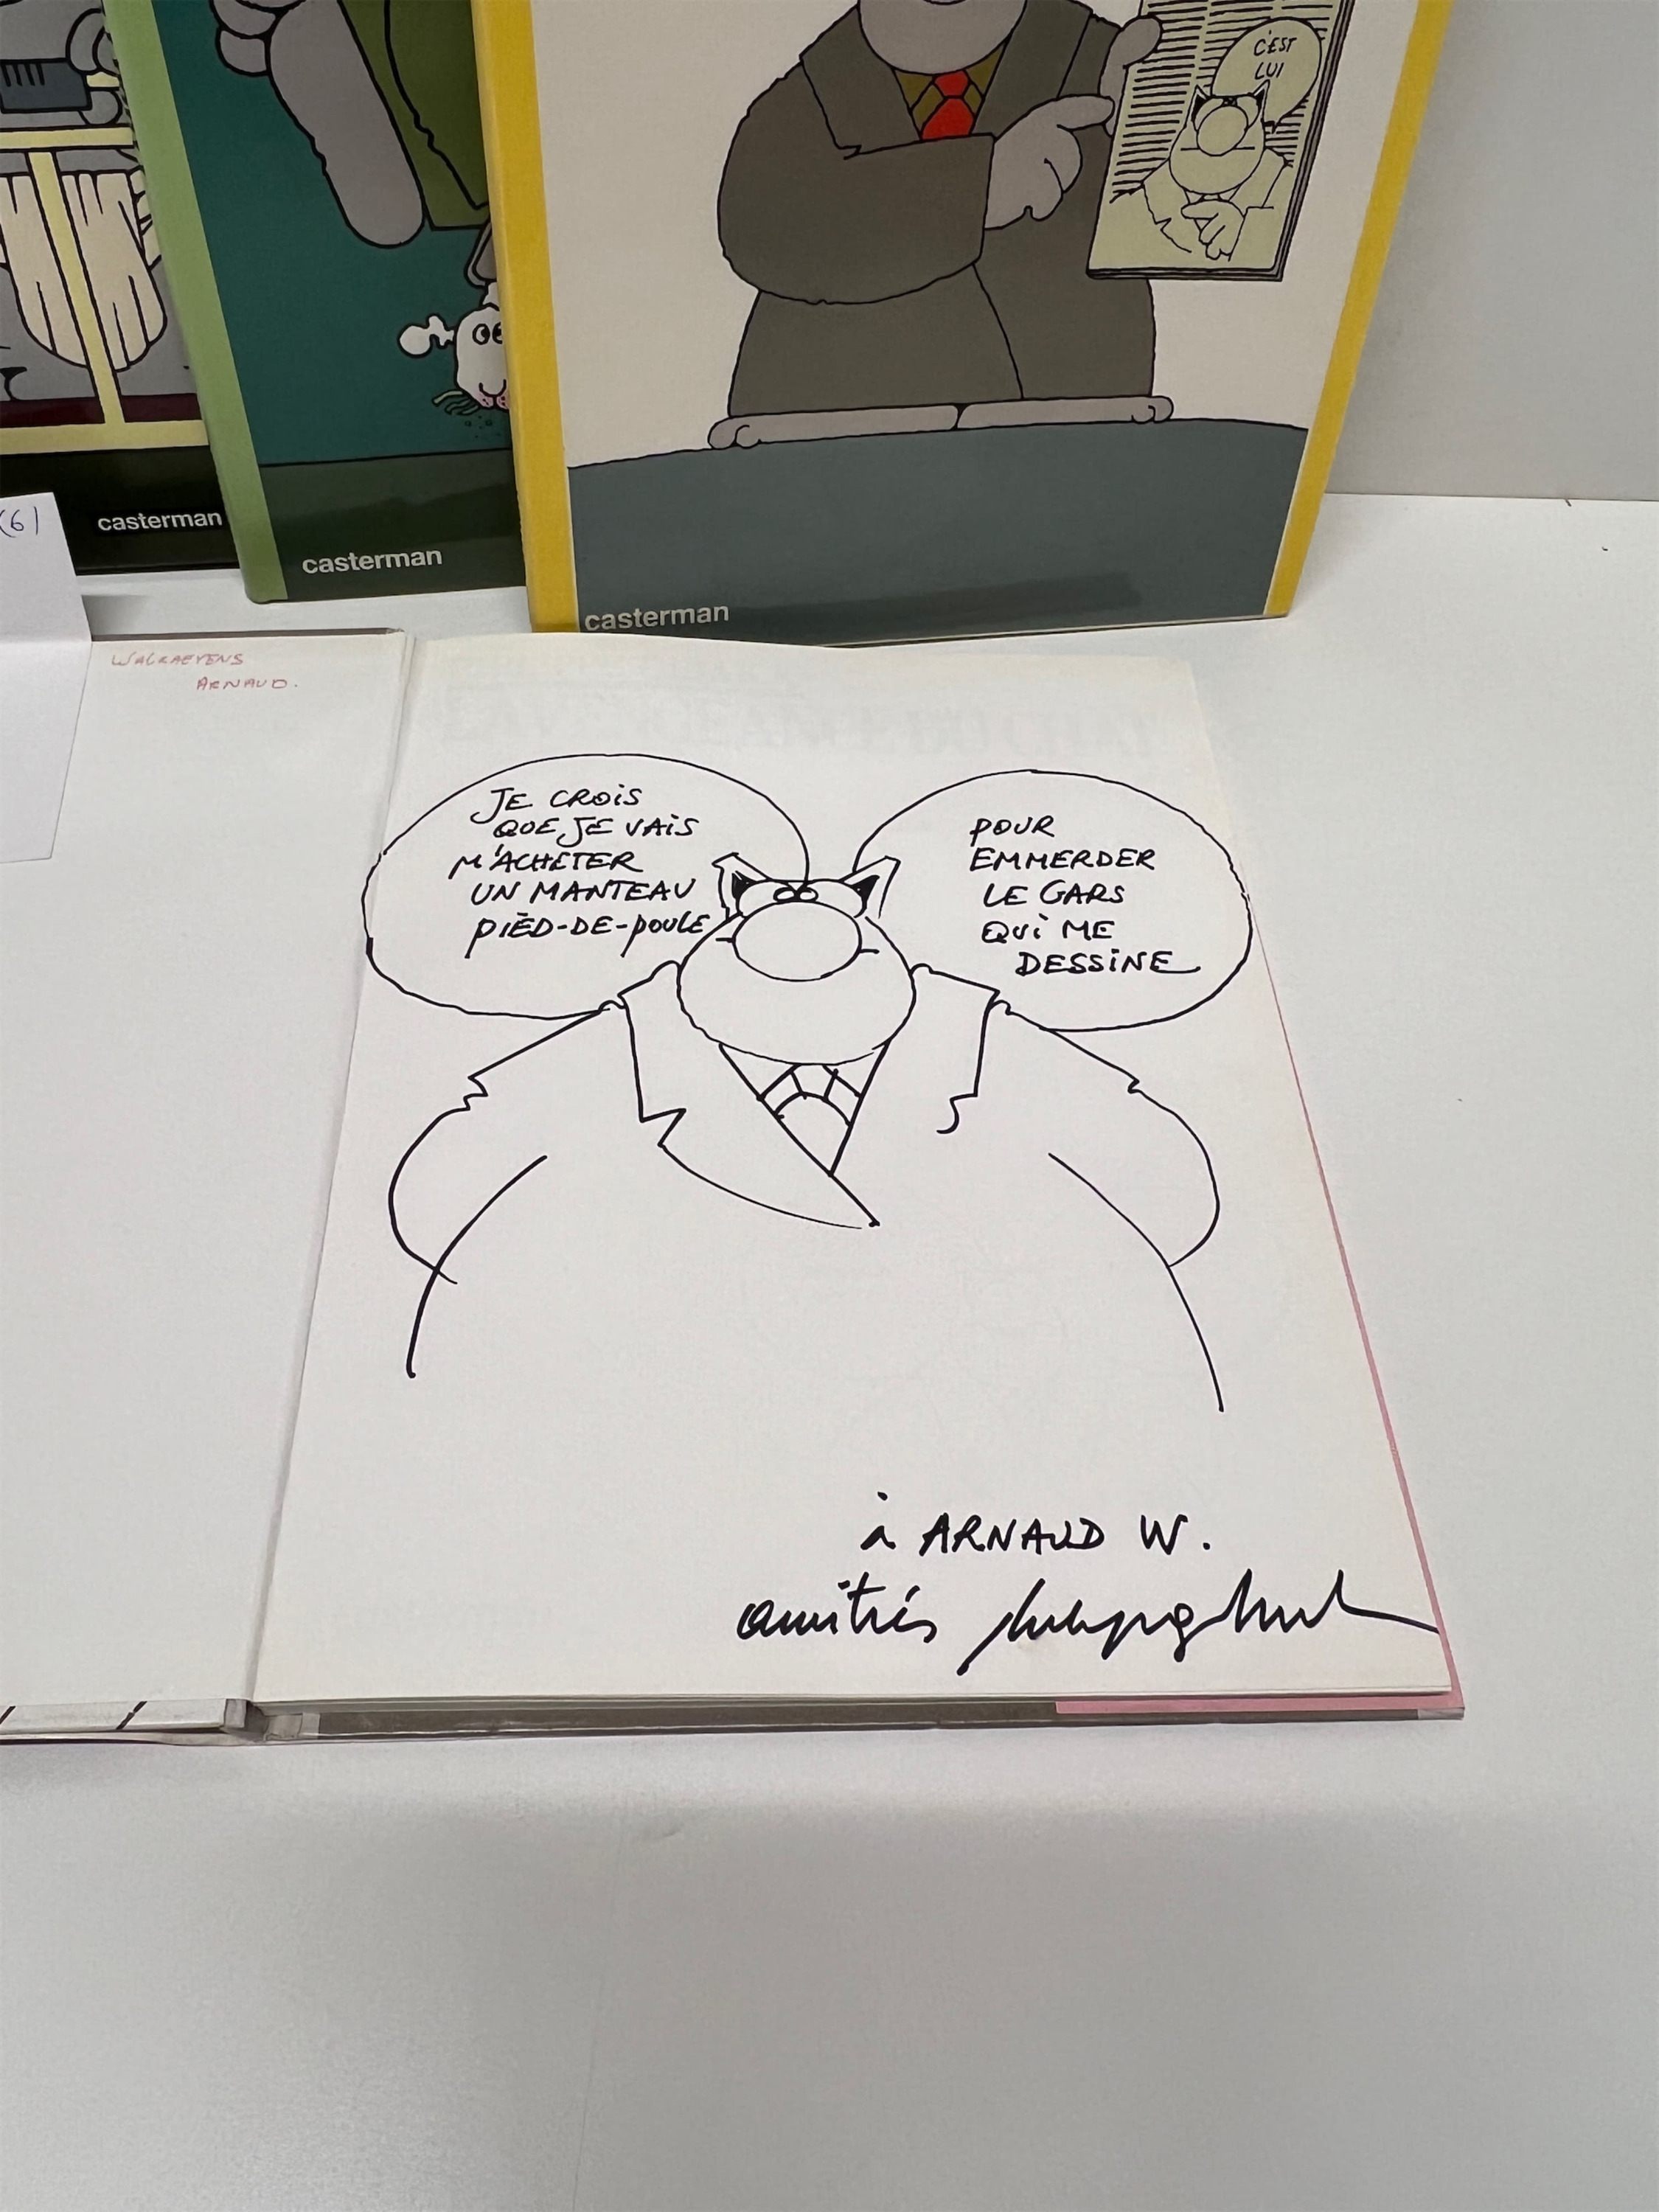 C'EST
LUI
(6)
casterman
casterman
casterman
WALRAEVENS
ARNAUD.
LA VENGEANCE DU CHAT
JE CROIS
QUE JE VAIS
M'ACHETER
UN MANTEAU
PIED-DE-POULE
POUR
EMMERDER
LE GARS
QUI ME
DESSINE
à ARNAUD W.
amitiés